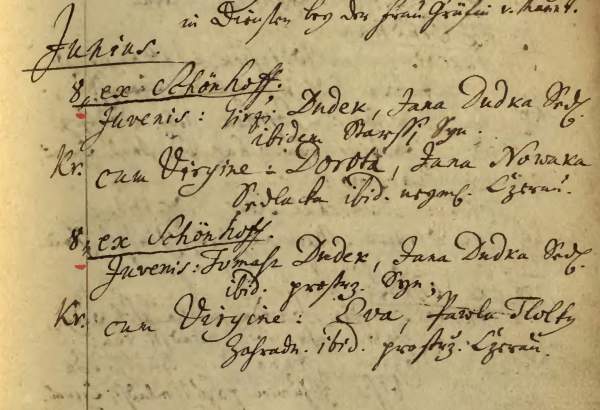 in Diensten bey der Frau Gräfin v.
Junius.
8. ex Schönhoff.
Juvenis: Jirzi Dudek, Jana Dudka Sedl.
ibidem Starssj Syn.
Kr. cum Virgine: Dorota, Jana Nowaka
Sedlacka ibid. neyml. Czerau.
8. ex Schönhoff.
Juvenis: Tomass Dudek, Jana Dudka Sedl.
ibid. prostrz. Syn;
Kr. cum Virgine: Eva, Pawla
Zahradn. ibid. prostrz. Czerau.